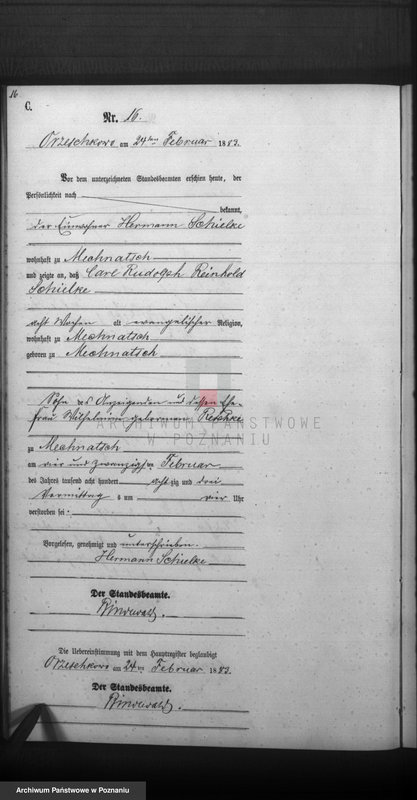 16
C.
Nr. 16.
Orzeschkowo am 24ten Februar 1883.
Vor dem unterzeichneten Standesbeamten erschien heute, der
Persönlichkeit nach
bekannt,
der Einwohner Hermann Schielke
wohnhaft zu Mechnatsch
und zeigte an, daß Carl Rudolph Reinhold
Schielke
acht Wochen alt evangelischer Religion,
wohnhaft zu Mechnatsch
geboren zu Mechnatsch
Sohn des Anzeigenden und dessen Ehe-
frau Wilhelmine geborenen Reschke
ARCHIWUM PAŃSTWOWE
W POZNANIU
zu Mechnatsch
am vier und zwanzigsten Februar
des Jahres tausend acht hundert acht zig und drei
Vormittag s um vier Uhr
verstorben sei.
Vorgelesen, genehmigt und unterschrieben.
Hermann Schielke
Der Standesbeamte.
Die Uebereinstimmung mit dem Hauptregister beglaubigt
Orzeschkowo am 24ten Februar 1883.
Der Standesbeamte.
Archiwum Państwowe w Poznaniu